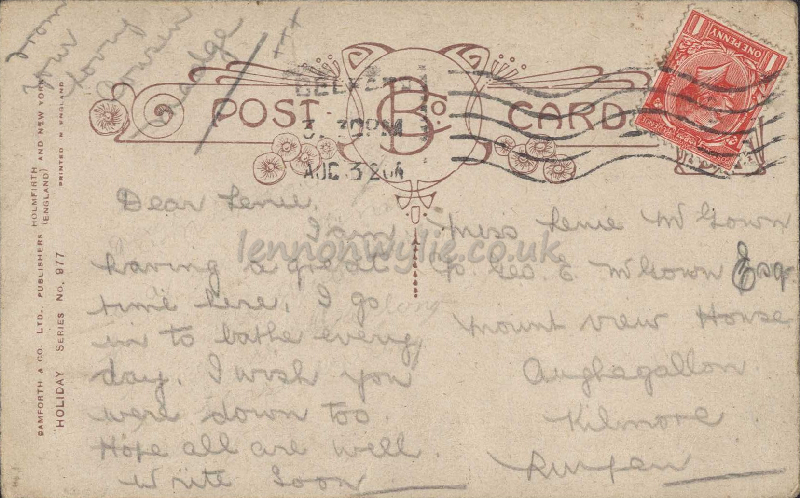 From
Your
loving
Cousin
Madge
XX
POST CARD
B & Co.
BELFAST
3.30PM
AUG 3
ONE PENNY
BAMFORTH & CO. LTD., PUBLISHERS HOLMFIRTH (ENGLAND) AND NEW YORK
PRINTED IN ENGLAND
HOLIDAY SERIES No. 977
Dear Lenie.
I am
having a great
time here. I go
in to bathe every
day. I wish you
were down too
Hope all are well.
Write Soon
Miss Lenie McGown
c/o Geo. E. McGown Esq
Mount View House
Aughagallon.
Kilmore
Lurgan
lennonwylie.co.uk